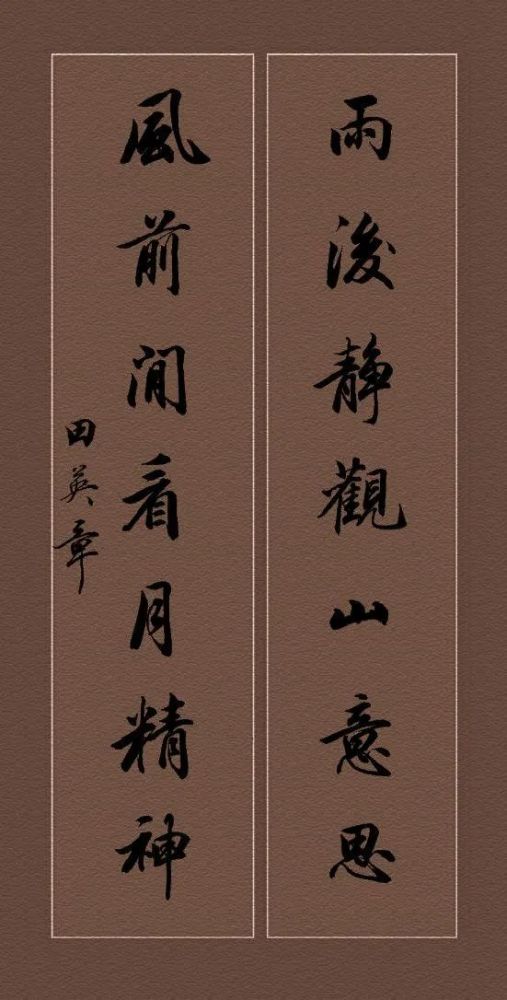 雨後靜觀山意思
風前閒看月精神
田英章